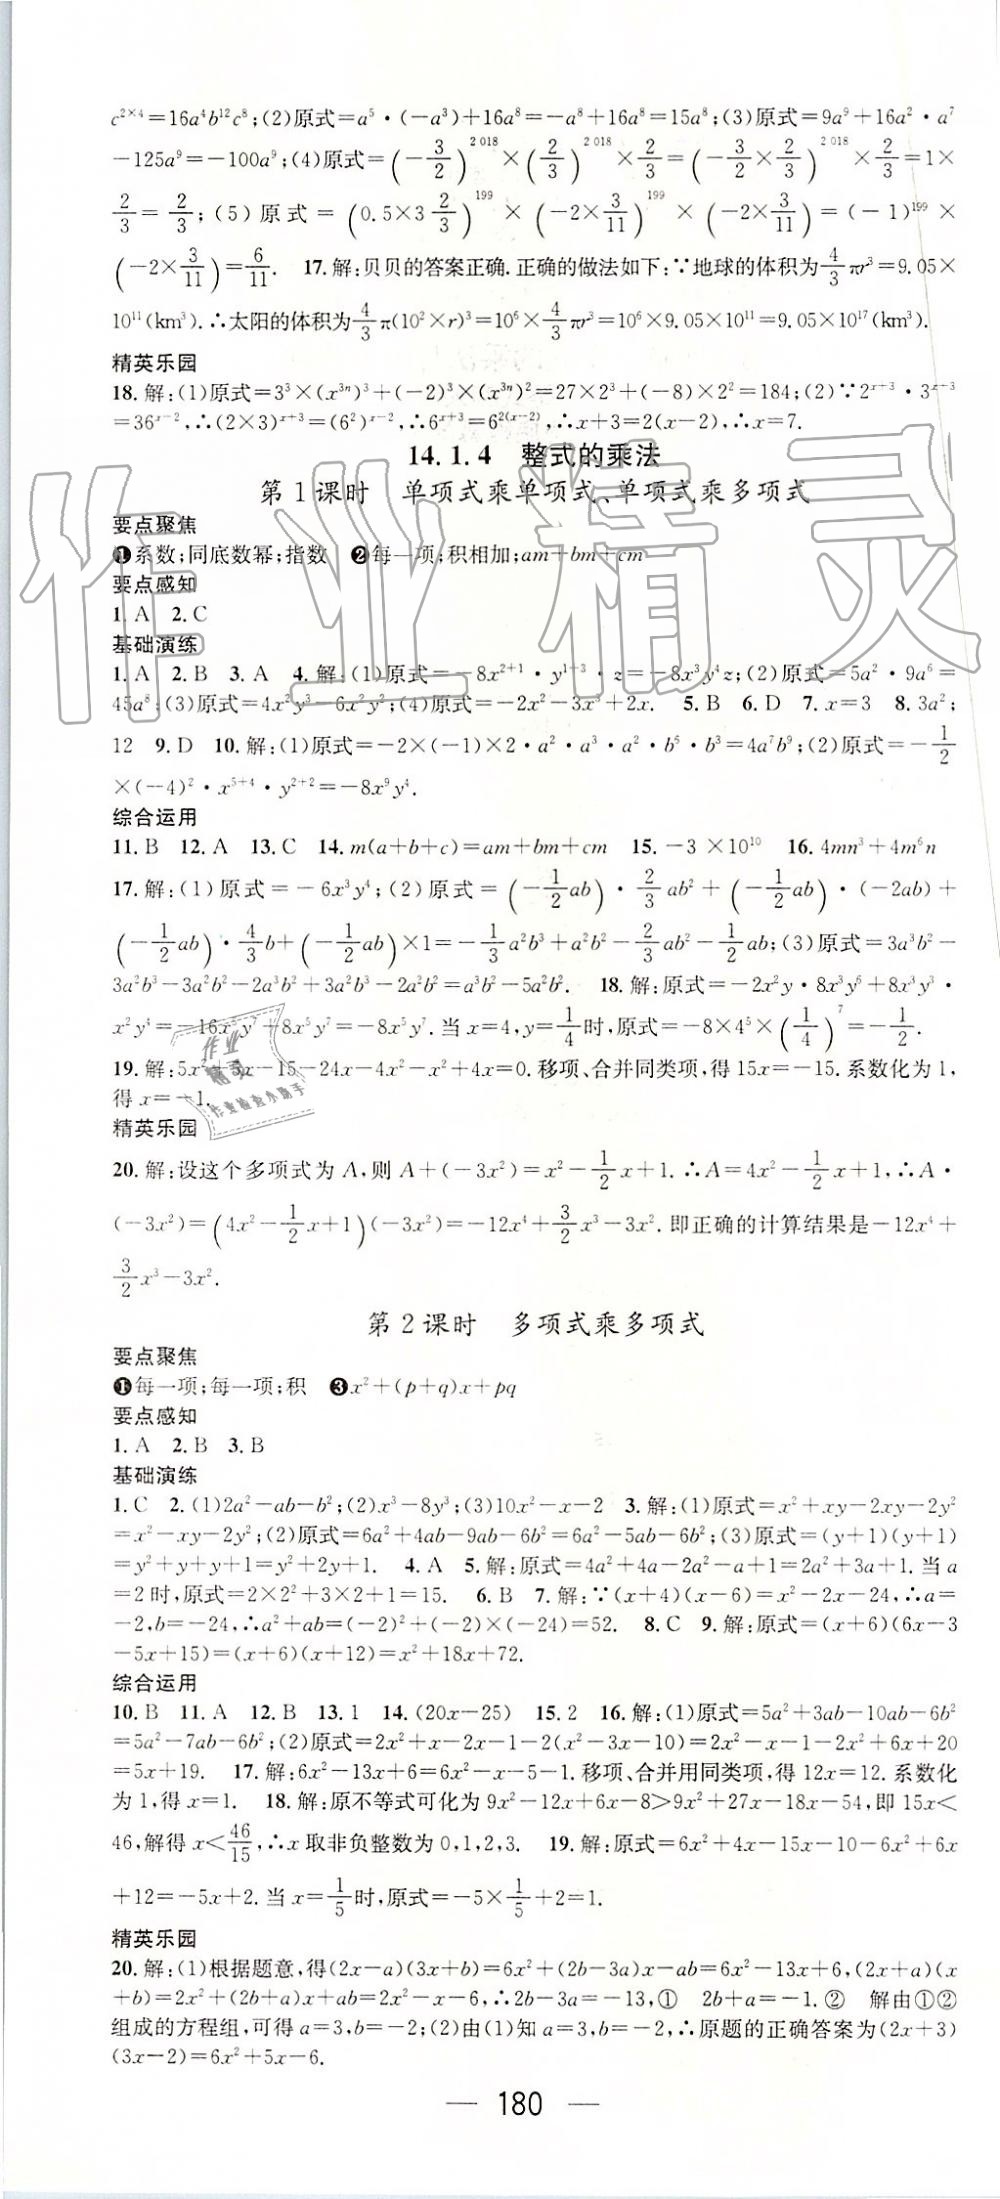 c^{2×4}=16a^4b^{12}c^8;(2)原式=a^5·(-a^3)+16a^8=-a^8+16a^8=15a^8;(3)原式=9a^9+16a^2·a^7
-125a^9=-100a^9;(4)原式=(-3/2)^{2 018}×(2/3)^{2 018}×2/3=(-3/2×2/3)^{2 018}×2/3=1×
2/3=2/3;(5)原式=(0.5×3 2/3)^{199}×(-2×3/11)^{199}×(-2×3/11)=(-1)^{199}×
(-2×3/11)=6/11. 17.解:贝贝的答案正确.正确的做法如下:∵地球的体积为4/3πr^3=9.05×
10^{11}(km^3).∴太阳的体积为4/3π(10^2×r)^3=10^6×4/3πr^3=10^6×9.05×10^{11}=9.05×10^{17}(km^3).
精英乐园
18.解:(1)原式=3^3×(x^{3n})^3+(-2)^3×(x^{3n})^2=27×2^3+(-8)×2^2=184;(2)∵2^{x+3}·3^{x+3}
=36^{x-2},∴(2×3)^{x+3}=(6^2)^{x-2},∴6^{x+3}=6^{2(x-2)},∴x+3=2(x-2).∴x=7.
14.1.4 整式的乘法
第1课时 单项式乘单项式、单项式乘多项式
要点聚焦
❶系数;同底数幂;指数 ❷每一项;积相加;am+bm+cm
要点感知
1.A 2.C
基础演练
1.A 2.B 3.A 4.解:(1)原式=-8x^{2+1}·y^{1+3}·z=-8x^3y^4z;(2)原式=5a^2·9a^6=
45a^8;(3)原式=4x^2y^3-6x^2y^2;(4)原式=-2x^2-3x^3+2x. 5.B 6.D 7.x=3 8.3a^2;
12 9.D 10.解:(1)原式=-2×(-1)×2·a^2·a^3·a^2·b^5·b^3=4a^7b^9;(2)原式=-1/2
×(-4)^2·x^{5+4}·y^{2+2}=-8x^9y^4.
综合运用
11.B 12.A 13.C 14.m(a+b+c)=am+bm+cm 15.-3×10^{10} 16.4mn^3+4m^6n
17.解:(1)原式=-6x^3y^4;(2)原式=(-1/2ab)·2/3ab^2+(-1/2ab)·(-2ab)+
(-1/2ab)·4/3b+(-1/2ab)×1=-1/3a^2b^3+a^2b^2-2/3ab^2-1/2ab;(3)原式=3a^3b^2-
3a^2b^3-3a^2b^2-2a^3b^2+3a^2b^3-2a^2b^2=a^3b^2-5a^2b^2. 18.解:原式=-2x^2y·8x^3y^6+8x^3y^3·
x^2y^4=-16x^5y^7+8x^5y^7=-8x^5y^7.当x=4,y=1/4时,原式=-8×4^5×(1/4)^7=-1/2.
19.解:5x^2+3x-15-24x-4x^2-x^2+4x=0.移项、合并同类项,得15x=-15.系数化为1,
得x=-1.
精英乐园
20.解:设这个多项式为A,则A+(-3x^2)=x^2-1/2x+1.∴A=4x^2-1/2x+1,∴A·
(-3x^2)=(4x^2-1/2x+1)(-3x^2)=-12x^4+3/2x^3-3x^2.即正确的计算结果是-12x^4+
3/2x^3-3x^2.
第2课时 多项式乘多项式
要点聚焦
❶每一项;每一项;积 ❸x^2+(p+q)x+pq
要点感知
1.A 2.B 3.B
基础演练
1.C 2.(1)2a^2-ab-b^2;(2)x^3-8y^3;(3)10x^2-x-2 3.解:(1)原式=x^2+xy-2xy-2y^2
=x^2-xy-2y^2;(2)原式=6a^2+4ab-9ab-6b^2=6a^2-5ab-6b^2;(3)原式=(y+1)(y+1)
=y^2+y+y+1=y^2+2y+1. 4.A 5.解:原式=4a^2+4a-2a^2-a+1=2a^2+3a+1.当a
=2时,原式=2×2^2+3×2+1=15. 6.B 7.解:∵(x+4)(x-6)=x^2-2x-24,∴a=
-2,b=-24,∴a^2+ab=(-2)^2+(-2)×(-24)=52. 8.C 9.解:原式=(x+6)(6x-3
-5x+15)=(x+6)(x+12)=x^2+18x+72.
综合运用
10.B 11.A 12.B 13.1 14.(20x-25) 15.2 16.解:(1)原式=5a^2+3ab-10ab-6b^2
=5a^2-7ab-6b^2;(2)原式=2x^2+x-2x-1-2(x^2-3x-10)=2x^2-x-1-2x^2+6x+20
=5x+19. 17.解:6x^2-13x+6=6x^2-x-5-1.移项、合并用同类项,得12x=12.系数化
为1,得x=1. 18.解:原不等式可化为9x^2-12x+6x-8>9x^2+27x-18x-54,即15x<
46,解得x<46/15,∴x取非负整数为0,1,2,3. 19.解:原式=6x^2+4x-15x-10-6x^2+6x
+12=-5x+2.当x=1/5时,原式=-5×1/5+2=1.
精英乐园
20.解:(1)根据题意,得(2x-a)(3x+b)=6x^2+(2b-3a)x-ab=6x^2-13x+6,(2x+a)(x
+b)=2x^2+(2b+a)x+ab=2x^2-x-6,∴2b-3a=-13,① 2b+a=-1.② 解由①②
组成的方程组,可得a=3,b=-2;(2)由(1)知a=3,b=-2,∴原题的正确答案为(2x+3)
(3x-2)=6x^2+5x-6.
— 180 —
作业精灵
作业
精灵
作业检查小助手